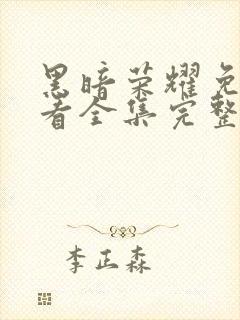 黑暗荣耀免
看全集完整
李正森